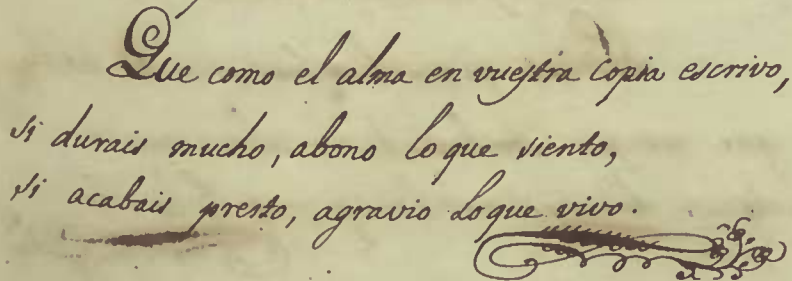 Que como el alma en vuestra copia escrivo,
si durais mucho, abono lo que siento,
si acabais presto, agravio lo que vivo.